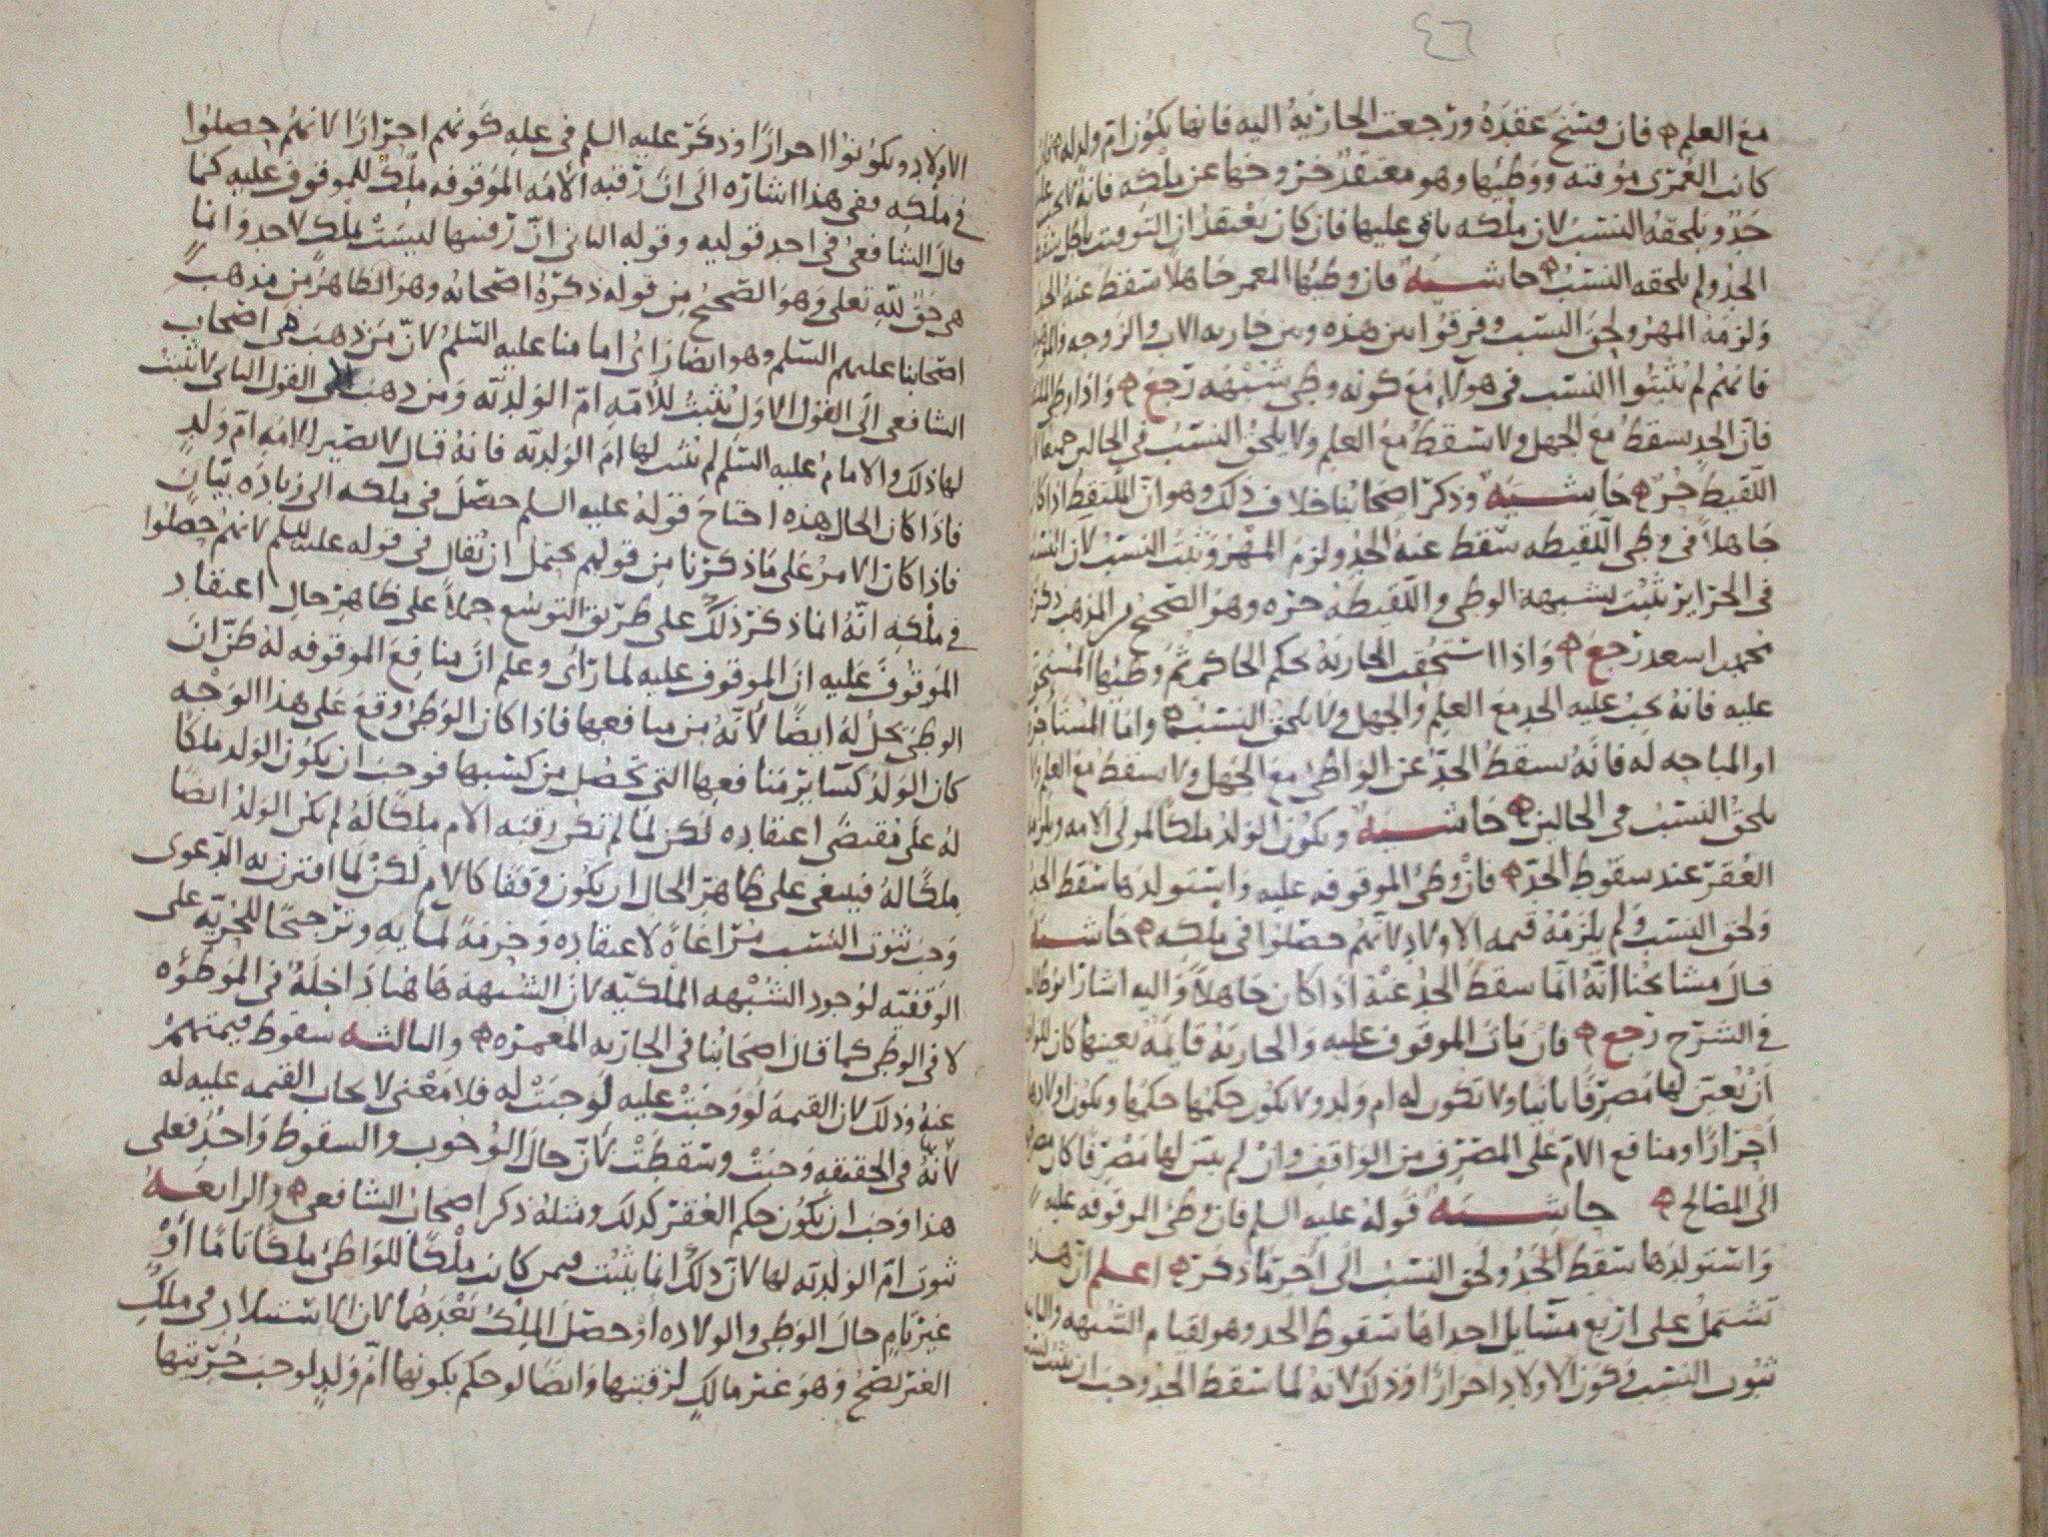 ٤٦
مع العلم فان فسخ عقده ورجعت الجارية اليه فانها يكون ام ولد له
كانت العمرى موقته ووطيها وهو معتقد خروجها عن ملكه فانه لا يجب عليه
حد ويلحقه النسب لان ملكه باق عليها فان كان يعتقد ان التوقيت باطل سقط
الحد ولم يلحقه النسب حاشيه فان وطيها المعمر جاهلا سقط عنه الحد
ولزمه المهر ولحق النسب وفرقوا بين هذه وبين جاريه الاب والزوجه
فانهم لم يثبتوا النسب في هولاء مع كونه وطى شبهه رجع واذا وطى
فان الحد يسقط مع الجهل ولا يسقط مع العلم ولا يلحق النسب في الحالين جميعا
اللقيط حر حاشيه وذكر اصحابنا خلاف ذلك وهو ان الملتقط اذا كان
جاهلا في وطى اللقيطه سقط عنه الحد ولزم المهر وثبت النسب لان النسب
في الحراير يثبت بشبهة الوطى واللقيطه حره وهو الصحيح للمذهب ذكره
محمد بن اسعد رجع واذا استحقت الجاريه بحكم الحاكم ثم وطيها المستحق
عليه فانه يجب عليه الحد مع العلم والجهل ولا يلحق النسب واما المستاجره
او المباحه له فانه يسقط الحد عن الواطئ مع الجهل ولا يسقط مع العلم ولا
يلحق النسب في الحالين حاشيه ويكون الولد ملكا لمولى الامه ويلزمه
العقر عند سقوط الحد فان وطئ الموقوفه عليه واستولدها سقط الحد
ولحق النسب ولم يلزمه قيمه الاولاد لانهم حصلوا في ملكه حاشيه
قال مشايخنا انه انما سقط الحد عنه اذا كان جاهلا واليه اشار ابو طالب
في الشرح رجع فان مات الموقوف عليه والجاريه قايمه بعينها كان للواقف
ان يعين لها مصرفا ثانيا ولا تكون له ام ولد ولا يكون حكمها حكمها ويكون اولادها
احرارا ومنافع الام على المصرف من الواقف وان لم يبين لها مصرفا كان
الى المصالح حاشيه قوله عليه السلم فان وطئ الموقوفه عليه
واستولدها سقط الحد ولحق النسب الى اخر ما ذكره اعلم ان هذه
تشتمل على اربع مسايل احداها سقوط الحد وهو لقيام الشبهه والثانيه
ثبوت النسب وكون الاولاد احرارا وذلك لانه لما سقط الحد وجب ان يثبت
الاولاد ويكونوا احرارا وذكر عليه السلم في عله كونهم احرارا لانهم حصلوا
في ملكه ففي هذا اشاره الى ان رقبه الامه الموقوفه ملك للموقوف عليه كما
قال الشافعي في احد قوليه وقوله الثاني ان رقبتها ليست بملك لاحد وانما
هي حق لله تعلى وهو الصحيح من قوله ذكره اصحابه وهو الظاهر من مذهب
اصحابنا عليهم السلم وهو ايضا راي امامنا عليه السلم لان من ذهب من اصحاب
الشافعي الى القول الاول يثبت للامه ام الولديه ومن ذهب الى القول الثاني لا يثبت
لها ذلك والامام عليه السلم لم يثبت لها ام الولديه فانه قال لا تصير الامه ام ولد
فاذا كان الحال هذه احتاج قوله عليه السلم حصل في ملكه الى زياده بيان
فاذا كان الامر على ما ذكرنا من قولهم يحتمل ان يقال في قوله عليه السلم لانهم حصلوا
في ملكه انه انما ذكر ذلك على طريق التوسع حملا على ظاهر حال اعتقاد
الموقوف عليه ان الموقوف عليه لما راى وعلم ان منافع الموقوفه له ظن ان
الوطى يحل له ايضا لانه من منافعها فاذا كان الوطى وقع على هذا الوجه
كان الولد كساير منافعها التي تحصل من كسبها فوجب ان يكون الولد ملكا
له على مقتضى اعتقاده لكن لما لم تكن رقبه الام ملكا له لم يكن الولد ايضا
ملكا له فينبغي على ظاهر الحال ان يكون وقفا كالام لكن لما اقترن به الدعوى
وجب ثبوت النسب مراعاة لاعتقاده وحرمة لمايه وترجيحا للحريه على
الوقفيه لوجود الشبهه الملكيه لان الشبهة هاهنا داخله في الموطؤه
لا في الوطى كما قال اصحابنا في الجاريه المعمره والثالثه سقوط قيمتهم
عنه وذلك لان القيمة لو وجبت عليه لوجبت له فلا معنى لايجاب القيمه عليه له
لانه في الحقيقه وجبت وسقطت لان حال الوجوب والسقوط واحد فعلى
هذا وجب ان يكون حكم العقر كذلك ومثله ذكر اصحاب الشافعي والرابعه
ثبوت ام الولديه لها لان ذلك انما يثبت فيمن كانت ملكا للواطئ ملكا تاما او
غير تام حال الوطى والولاده او حصل الملك بعدهما لان الاستيلاد في ملك
الغير لا يصح وهو غير مالك لرقبتها وايضا لو حكم بكونها ام ولد لوجب حريتها